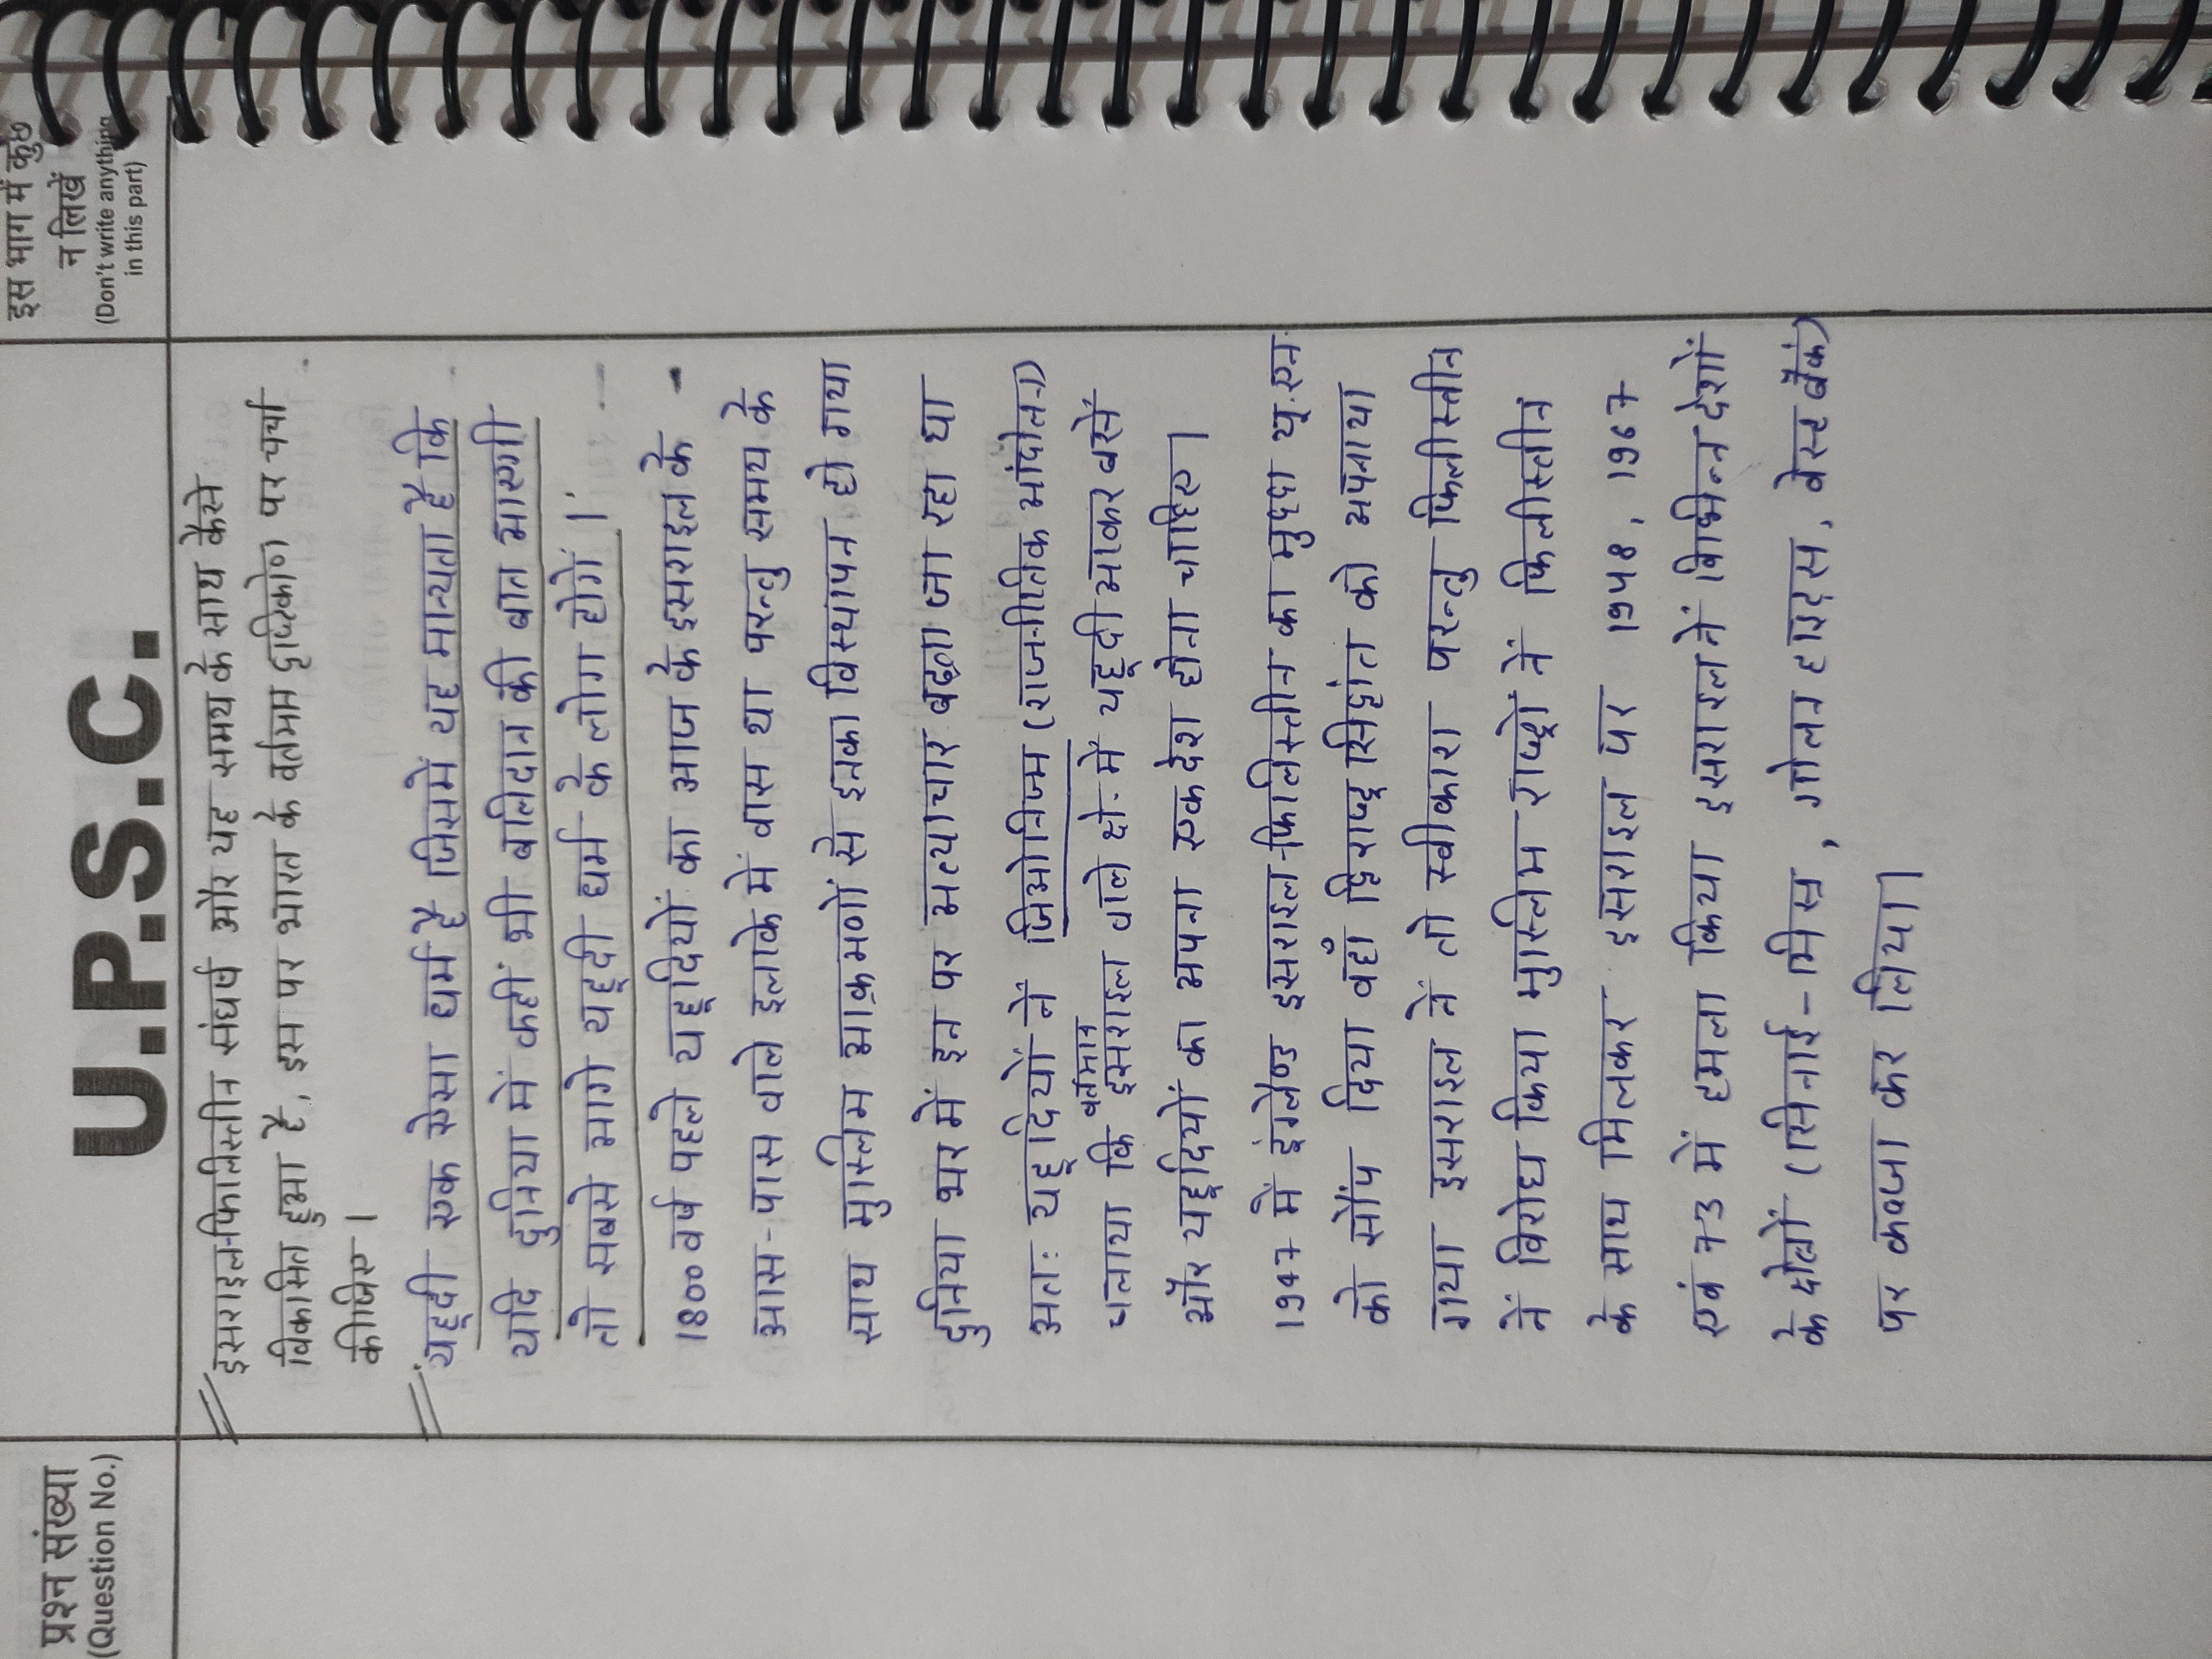 प्रश्न संख्या
(Question No.)
U.P.S.C.
इस भाग में कुछ
न लिखें
(Don't write anything
in this part)
इसराइल-फिलिस्तीन संघर्ष और यह समय के साथ कैसे
विकसित हुआ है, इस पर भारत के वर्तमान दृष्टिकोण पर चर्चा
कीजिए ।
यहूदी एक ऐसा धर्म है जिसमें यह मान्यता है कि
यदि दुनिया में कहीं भी बलिदान की बात आएगी
तो सबसे आगे यहूदी धर्म के लोग होगें ।
1800 वर्ष पहले यहूदियों का आज के इसराइल के
आस-पास वाले इलाके में वास था परन्तु समय के
साथ मुस्लिम आक्रमणों से इनका विस्थापन हो गया
दुनिया भर में इन पर अत्याचार बढ़ता जा रहा था
अतः यहूदियों नें जिओनिज्म (राजनीतिक आंदोलन)
चलाया कि वर्तमान इसराइल वाले क्षे. में यहूदी आकर बसें
और यहूदियों का अपना एक देश होना चाहिए ।
1947 में इंग्लैण्ड इसराइल-फिलिस्तीन का मुद्दा यू.एन.
को सौंप दिया वहाँ द्विराष्ट्र सिद्धांत को अपनाया
गया इसराइल नें तो स्वीकारा परन्तु फिलीस्तीन
नें विरोध किया मुस्लिम राष्ट्रों नें फिलीस्तीन
के साथ मिलकर इसराइल पर 1948, 1967
एवं 73 में हमला किया इसराइल नें विभिन्न देशों
के क्षेत्रों (सिनाई-मिस्र, गोलन हाइट्स, वेस्ट बैंक)
पर कब्जा कर लिया।